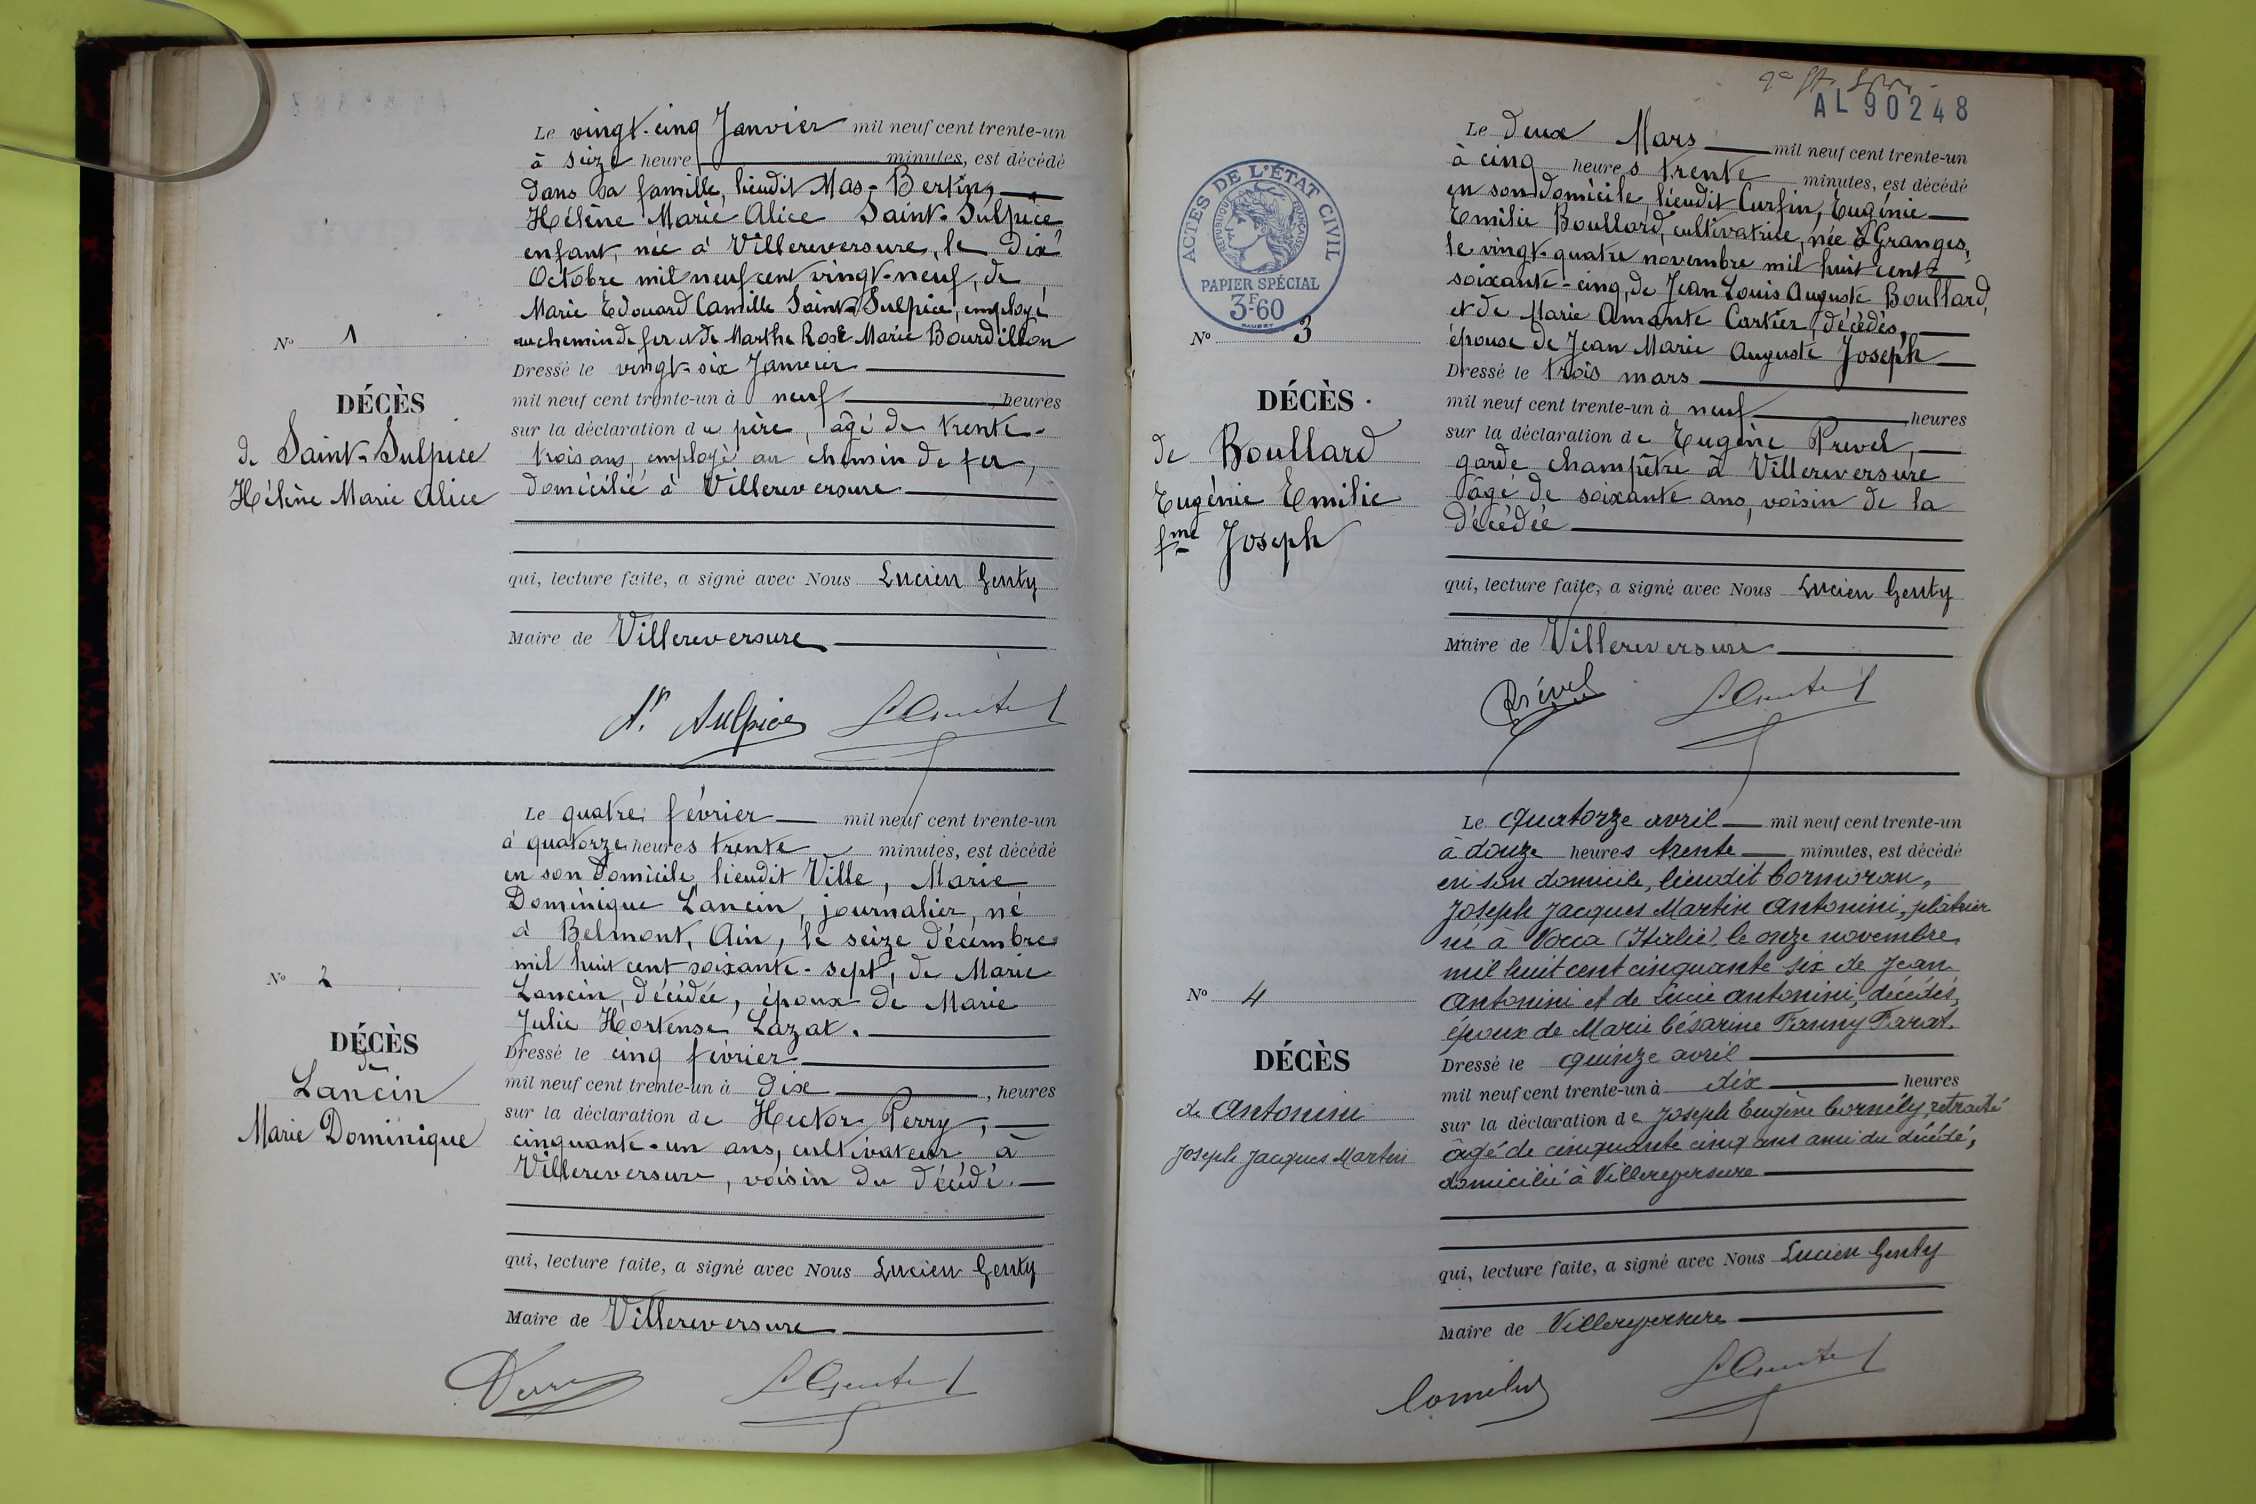 Le vingt-cinq Janvier mil neuf cent trente-un
à seize heure minutes, est décédé
dans sa famille, lieudit Mas-Bertin,
Hélène Marie Alice Saint-Sulpice
enfant, née à Villereversure, le dix
Octobre mil neuf cent vingt-neuf, de
Marie Edouard Camille Saint-Sulpice, employé
au chemin de fer et de Marthe Rose Marie Bourdillon
Nº 1
Dressé le vingt-six Janvier
mil neuf cent trente-un à neuf heures
DÉCÈS
de Saint-Sulpice
Hélène Marie Alice
sur la déclaration du père, âgé de trente-
trois ans, employé au chemin de fer,
domicilié à Villereversure
qui, lecture faite, a signé avec Nous Lucien Genty
Maire de Villereversure
St Sulpice
Le quatre février mil neuf cent trente-un
à quatorze heures trente minutes, est décédé
en son domicile, lieudit Ville, Marie
Dominique Lancin, journalier, né
à Belmont, Ain, le seize décembre
mil huit cent soixante-sept, de Marie
Lancin, décédée, époux de Marie
Julie Hortense Lazat.
Nº 2
DÉCÈS
de
Lancin
Marie Dominique
Dressé le cinq février
mil neuf cent trente-un à dix, heures
sur la déclaration de Hector Perry,
cinquante-un ans, cultivateur à
Villereversure, voisin du décédé.
qui, lecture faite, a signé avec Nous Lucien Genty
Maire de Villereversure
AL 90248
ACTES DE L'ÉTAT CIVIL
RÉPUBLIQUE FRANÇAISE
PAPIER SPÉCIAL
3F60
Le deux Mars mil neuf cent trente-un
à cinq heures trente minutes, est décédé
en son domicile, lieudit Curfin, Eugénie
Emilie Boullard, cultivatrice, née à Granges,
le vingt-quatre novembre mil huit cent
soixante-cinq, de Jean Louis Auguste Boullard,
et de Marie Amante Cartier, décédés,
épouse de Jean Marie Auguste Joseph
Nº 3
DÉCÈS
de Boullard
Eugénie Emilie
fme Joseph
Dressé le trois mars
mil neuf cent trente-un à neuf heures
sur la déclaration de Eugène Prevel,
garde champêtre à Villereversure
âgé de soixante ans, voisin de la
décédée
qui, lecture faite, a signé avec Nous Lucien Genty
Maire de Villereversure
Prével
Le quatorze avril mil neuf cent trente-un
à douze heures trente minutes, est décédé
en son domicile, lieudit Cormoran,
Joseph Jacques Martin Antonini, plâtrier
né à Vocca (Italie) le onze novembre
mil huit cent cinquante six de Jean
Antonini et de Lucie Antonini, décédés,
époux de Marie Césarine Fanny Farat.
Nº 4
DÉCÈS
de Antonini
Joseph Jacques Martin
Dressé le quinze avril
mil neuf cent trente-un à dix heures
sur la déclaration de Joseph Eugène Cornély, retraité
âgé de cinquante cinq ans ami du décédé,
domicilié à Villereversure
qui, lecture faite, a signé avec Nous Lucien Genty
Maire de Villereversure